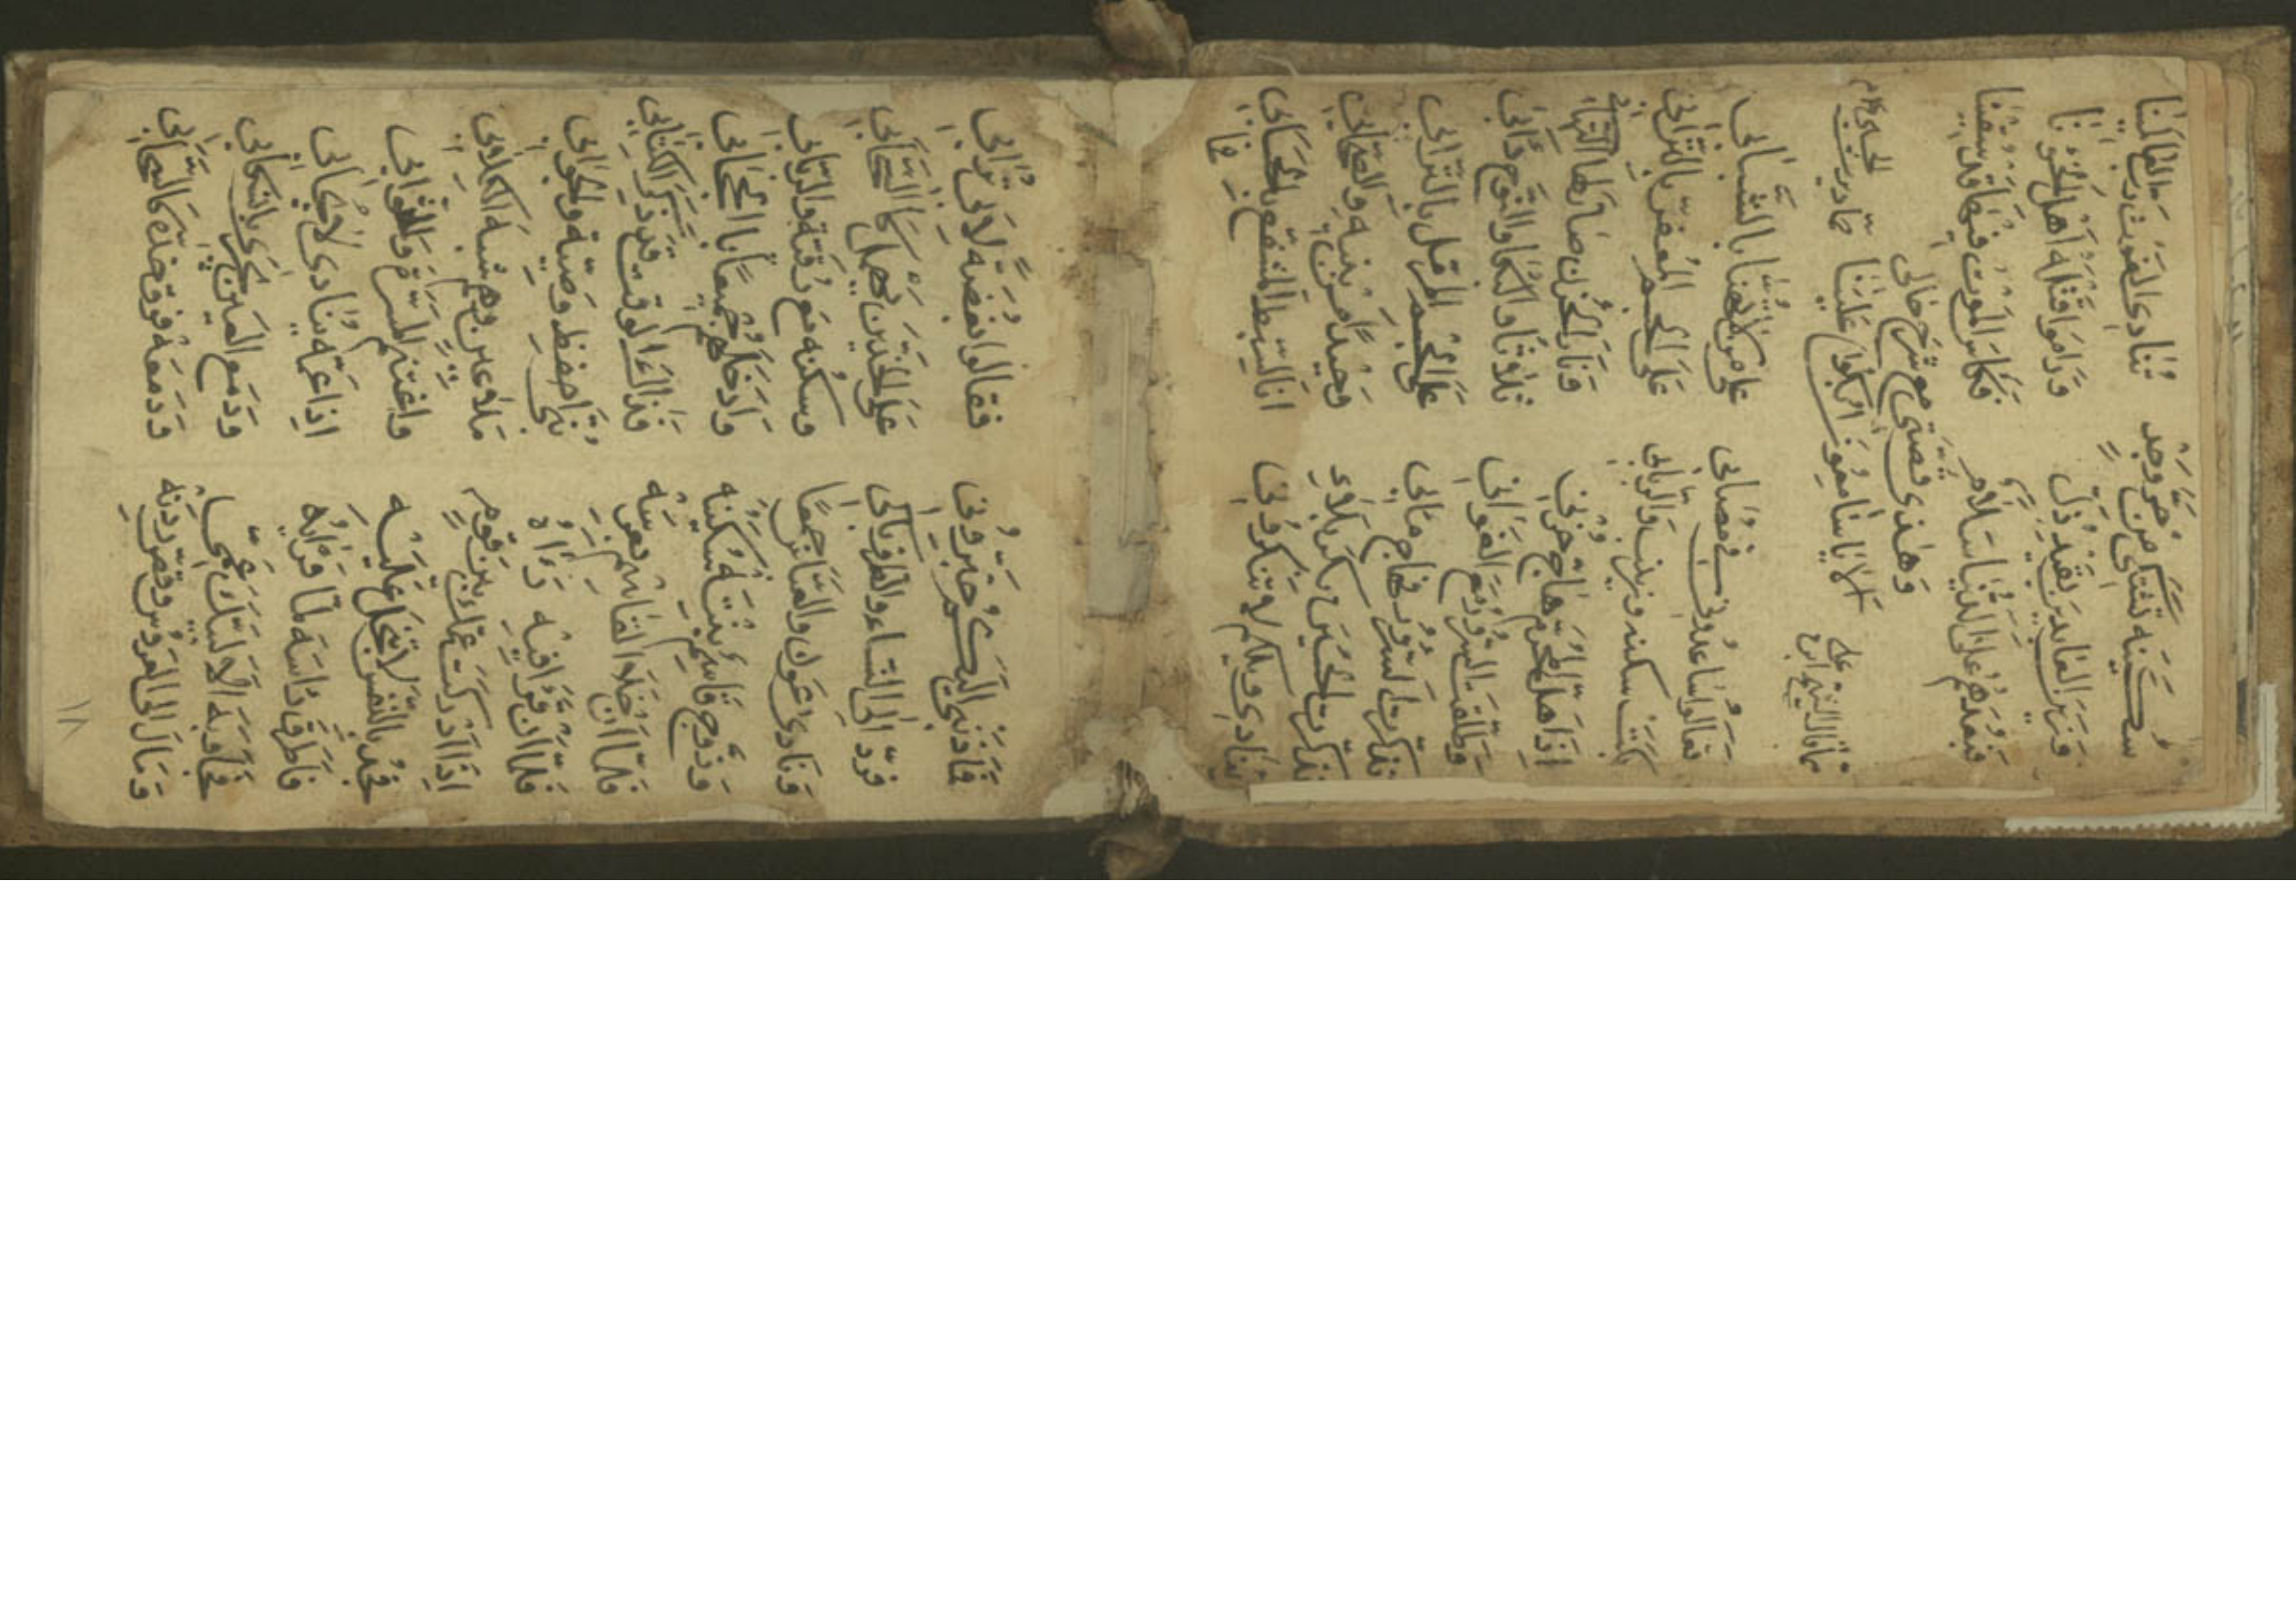 سكينه تشتكي من حر وجد تنادي الغوث رب العالمينا
وزين العابدين بقيد ذل وراموا قتله اهل
فبعدهم على الدنيا سلام فكاس الموت فيها قد سقينا
وهذي قصتي مع شرح حالي الا يا سامعون ابكوا علينا
مما قال الشيخ
تعالوا ساعدوني في مصابي على من لا يهنا بالشباب
بكيت سكينه وزينب والرباب على الجسم المعفر بالتراب
اذا هل المحرم هاج حزني ونار الحزن صار لها التهاب
وطلقت السرور مع الغواني البكا والنوح دابي
تذكرت السرور فهاج ما بي على الجسم المرمل بالتراب
تذكرت الحسين بكربلاء وحيدا من بنيه والصحاب
ينادي ويلكم لا تنكروني انا السبط المشفع بالحساب
اليكم خبروني فقالوا بغضة لابي تراب
فرد الى النساء والطرف باكي على الخدين يهمل كالسحاب
ونادى عون والعباس جمعا وسكنه مع رقيه والرباب
وزوج قاسم بنت له سكنه وادخلهم جميعا بالحجاب
فلما ان خلا القاسم بعرسه فذالك الوقت قد ذكر الكتاب
فلما ان قرا فيه راه بني احفظ وصيه والجواب
اذا ادركت عمك بين قوم ملاعين وهم شبه الكلاب
فجد بالنفس لا تبخل عليه واغتنم المسرة والثواب
فاطرق راسه لما قراه اذا عمه ينادي لا يجاب
فجاوبه الا لبيك عمي ودمع العين يجري بانسكاب
ومال الى العروس وقد ودمعه فوق خده كالسحاب
١٨